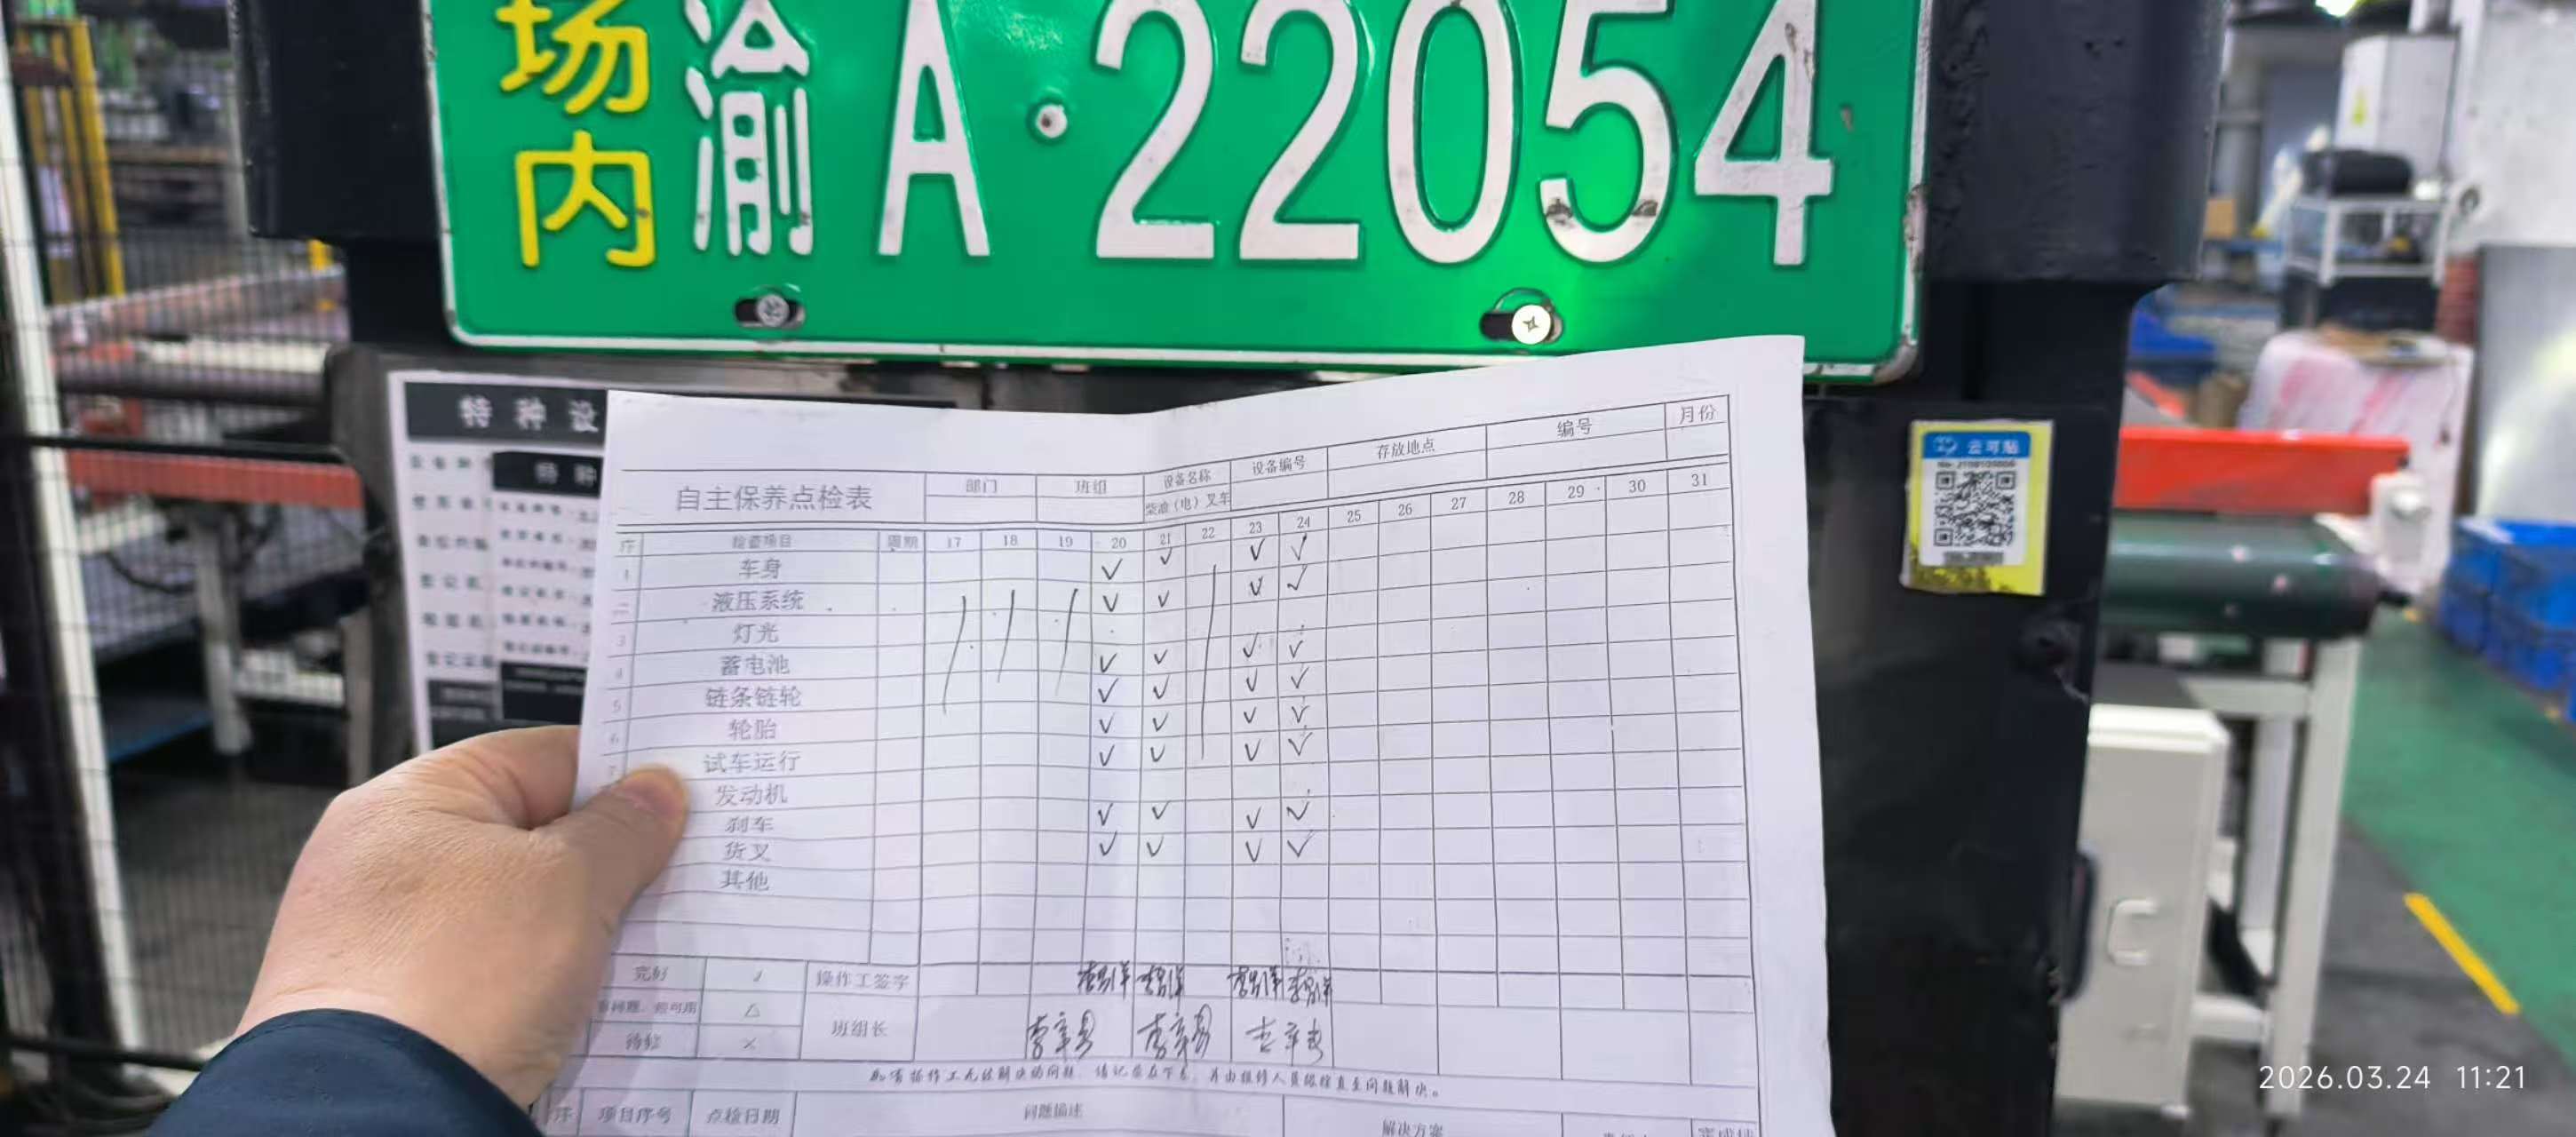 场内 渝A·22054
特种设
特种
云可贴
自主保养点检表 部门 班组 设备名称 设备编号 存放地点 编号 月份
柴油（电）叉车
序 检查项目 周期 17 18 19 20 21 22 23 24 25 26 27 28 29 30 31
1 车身 √ √ √ √
二 液压系统 √ √ √ √
3 灯光
4 蓄电池 √ √ √ √
5 链条链轮 √ √ √ √
6 轮胎 √ √ √ √
7 试车运行 √ √ √ √
发动机
刹车 √ √ √ √
货叉 √ √ √ √
其他
完好 √ 操作工签字
问题、但可用 △
待修 × 班组长
如有操作工无法解决的问题，请记录在下表，并由维修人员跟踪直至问题解决。
序 项目序号 点检日期 问题描述 解决方案
2026.03.24 11:21